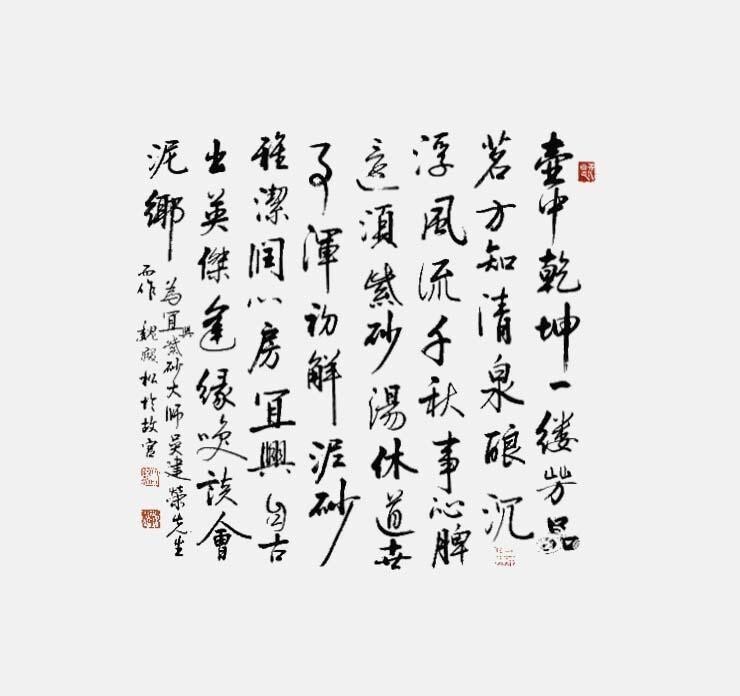 壺中乾坤一缕芳品
茗方知清泉酿沉
浮風流千秋事沁脾
還須紫砂湯休道世
事渾初解泥砂
雅潔潤心房宜興自古
出英傑逢緣咲談會
泥鄉
為宜興紫砂大師吳建榮先生
而作 魏松於故宫